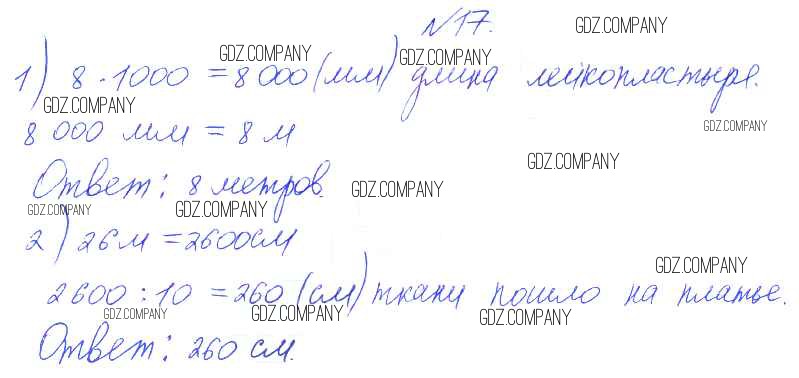 №17.
GDZ.COMPANY
GDZ.COMPANY GDZ.COMPANY
1) 8 · 1000 = 8 000 (мм) длина лейкопластыря.
GDZ.COMPANY
8 000 мм = 8 м
GDZ.COMPANY
GDZ.COMPANY
Ответ: 8 метров.
GDZ.COMPANY
GDZ.COMPANY GDZ.COMPANY
2) 26 м = 2600 см
GDZ.COMPANY
2600 : 10 = 260 (см) ткани пошло на платье.
GDZ.COMPANY GDZ.COMPANY GDZ.COMPANY
Ответ: 260 см.